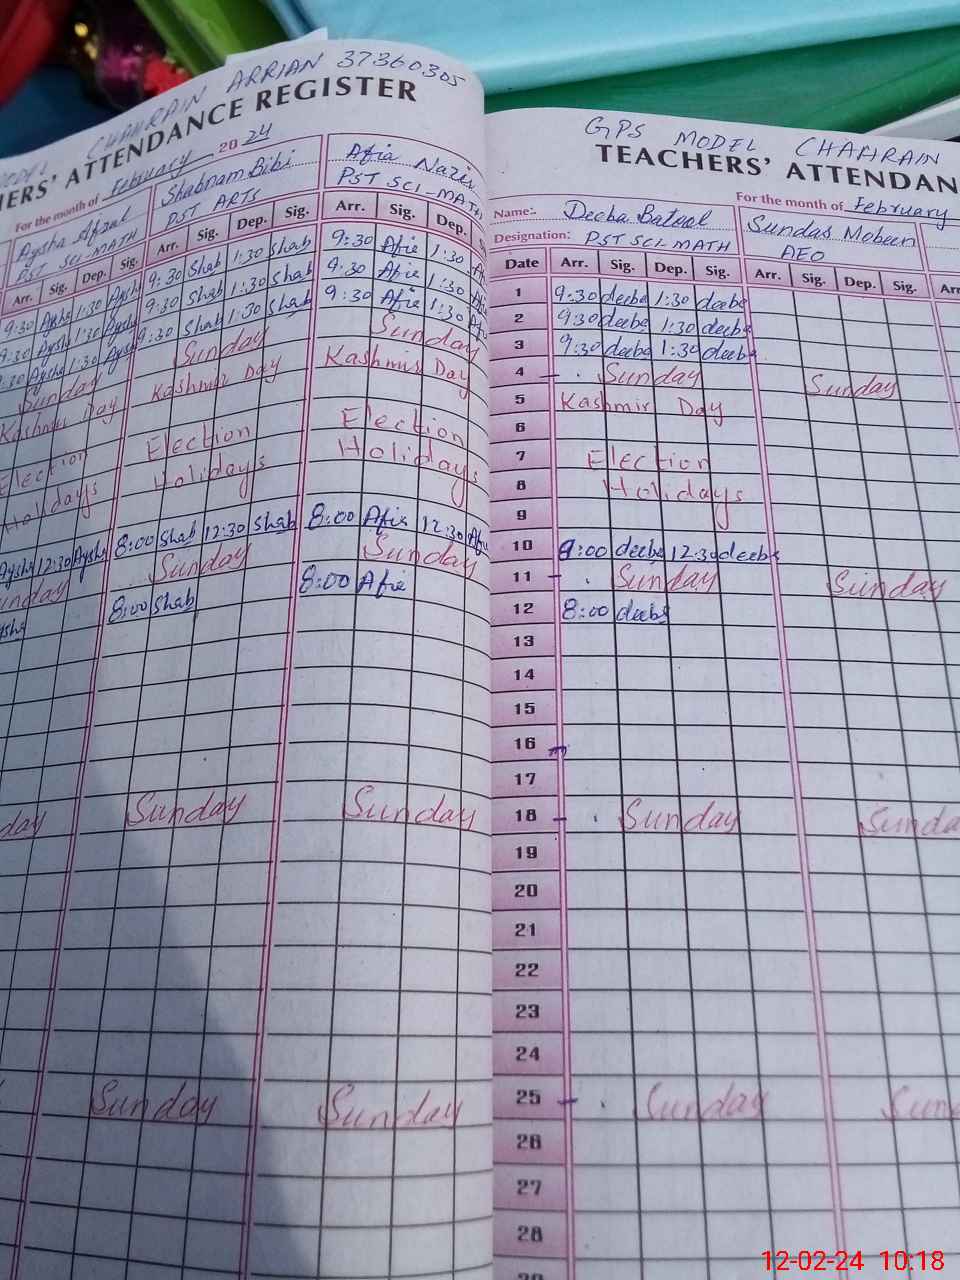 CHAHRAIN ARRIAN 37360305
ERS' ATTENDANCE REGISTER
For the month of February 2024
Aysha Afzal
PST SCI-MATH
Shabnam Bibi
PST ARTS
Afia Nazir
PST SCI-MATH
Arr. Sig. Dep. Sig. Arr. Sig. Dep. Sig. Arr. Sig. Dep. S
9:30 Aysha 1:30 Aysha 9:30 Shab 1:30 Shab 9:30 Afia 1:30 Af
9:30 Aysha 1:30 Aysha 9:30 Shab 1:30 Shab 9:30 Afia 1:30 Afi
9:30 Aysha 1:30 Aysha 9:30 Shab 1:30 Shab 9:30 Afia 1:30 Afi
Sunday Sunday Sunday
Kashmir Day Kashmir Day Kashmir Day
Election Election Election
Holidays Holidays Holidays
Aysha 12:30 Aysha 8:00 Shab 12:30 Shab 8:00 Afia 12:30 Afi
unday Sunday Sunday
ysha 8:00 Shab 8:00 Afia
day Sunday Sunday
Sunday Sunday
GPS MODEL CHAHRAIN
TEACHERS' ATTENDAN
For the month of February
Name:- Deeba Batool Sundas Mobeen
Designation: PST SCI-MATH AEO
Date Arr. Sig. Dep. Sig. Arr. Sig. Dep. Sig. Arr
1 9:30 deeba 1:30 deeba
2 9:30 deeba 1:30 deeba
3 9:30 deeba 1:30 deeba
4 Sunday Sunday
5 Kashmir Day
6
7 Election
8 Holidays
9
10 8:00 deeba 12:30 deeba
11 Sunday Sunday
12 8:00 deeba
13
14
15
16
17
18 Sunday Sunda
19
20
21
22
23
24
25 Sunday Sun
26
27
28
12-02-24 10:18